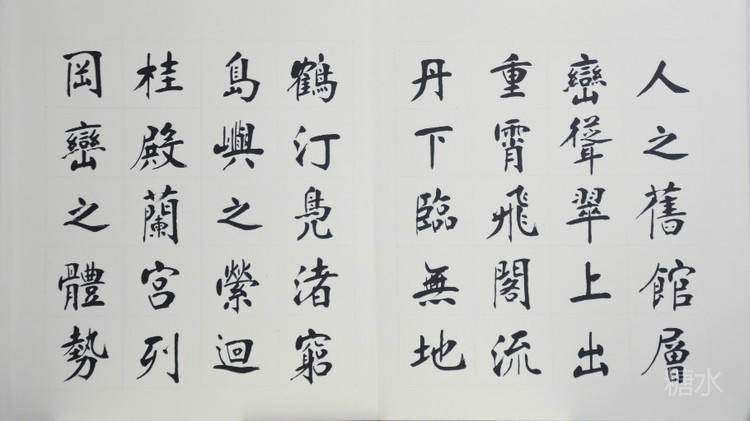 人之舊館層
巒聳翠上出
重霄飛閣流
丹下臨無地
鶴汀鳧渚窮
島嶼之縈迴
桂殿蘭宮列
岡巒之體勢
糖水